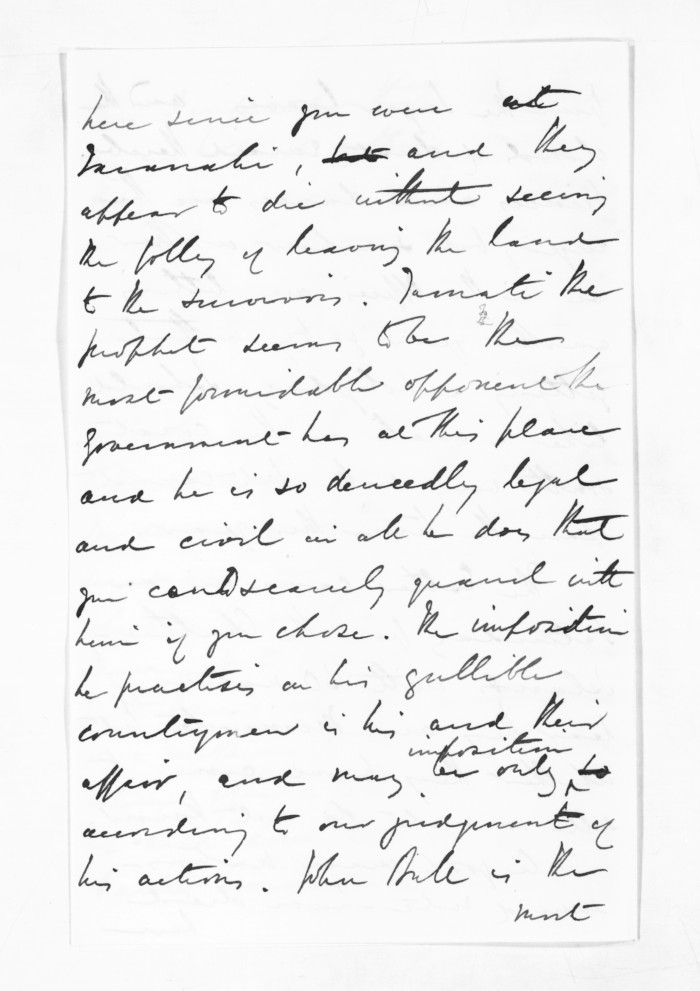 here since you were at
Taranaki, but and they
appear to die without seeing
the folly of leaving the land
to the survivors. Tamati the
prophet seems to be the
most formidable opponent the
Government has at this place
and he is so deucedly legal
and civil in all he does that
you could scarcely quarrel with
him if you chose. The imposition
he practises on his gullible
countrymen is his and their
affair, and may be only imposition to
according to our judgment of
his actions. John Bull is the
most